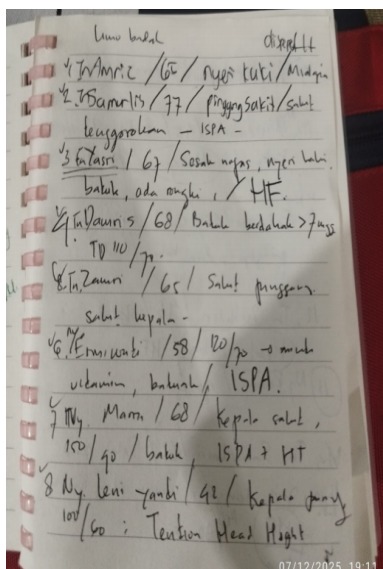 1. Tn Amric / 65 / nyeri kaki / Mialgia
2. Samurlis / 77 / pinggang sakit / sakit
tenggorokan - ISPA -
3 Tn Yasri / 67 / Sesak napas, nyeri
batuk, ada / HF.
4. Tn Dauris / 68 / Batuk berdahak > 7
TD 110/70.
Tn. Zamri / 65 / Sakit punggung
sakit kepala -
6. Ny Ermiwati / 58 / 120/70 →
vitamin, batuk, ISPA.
7 Ny. / 68 / Kepala sakit,
150/90 / batuk, ISPA + HT
8 Ny. Leni yanti / 42 / Kepala
100/60 : Tention Head
07/12/2025 19:11